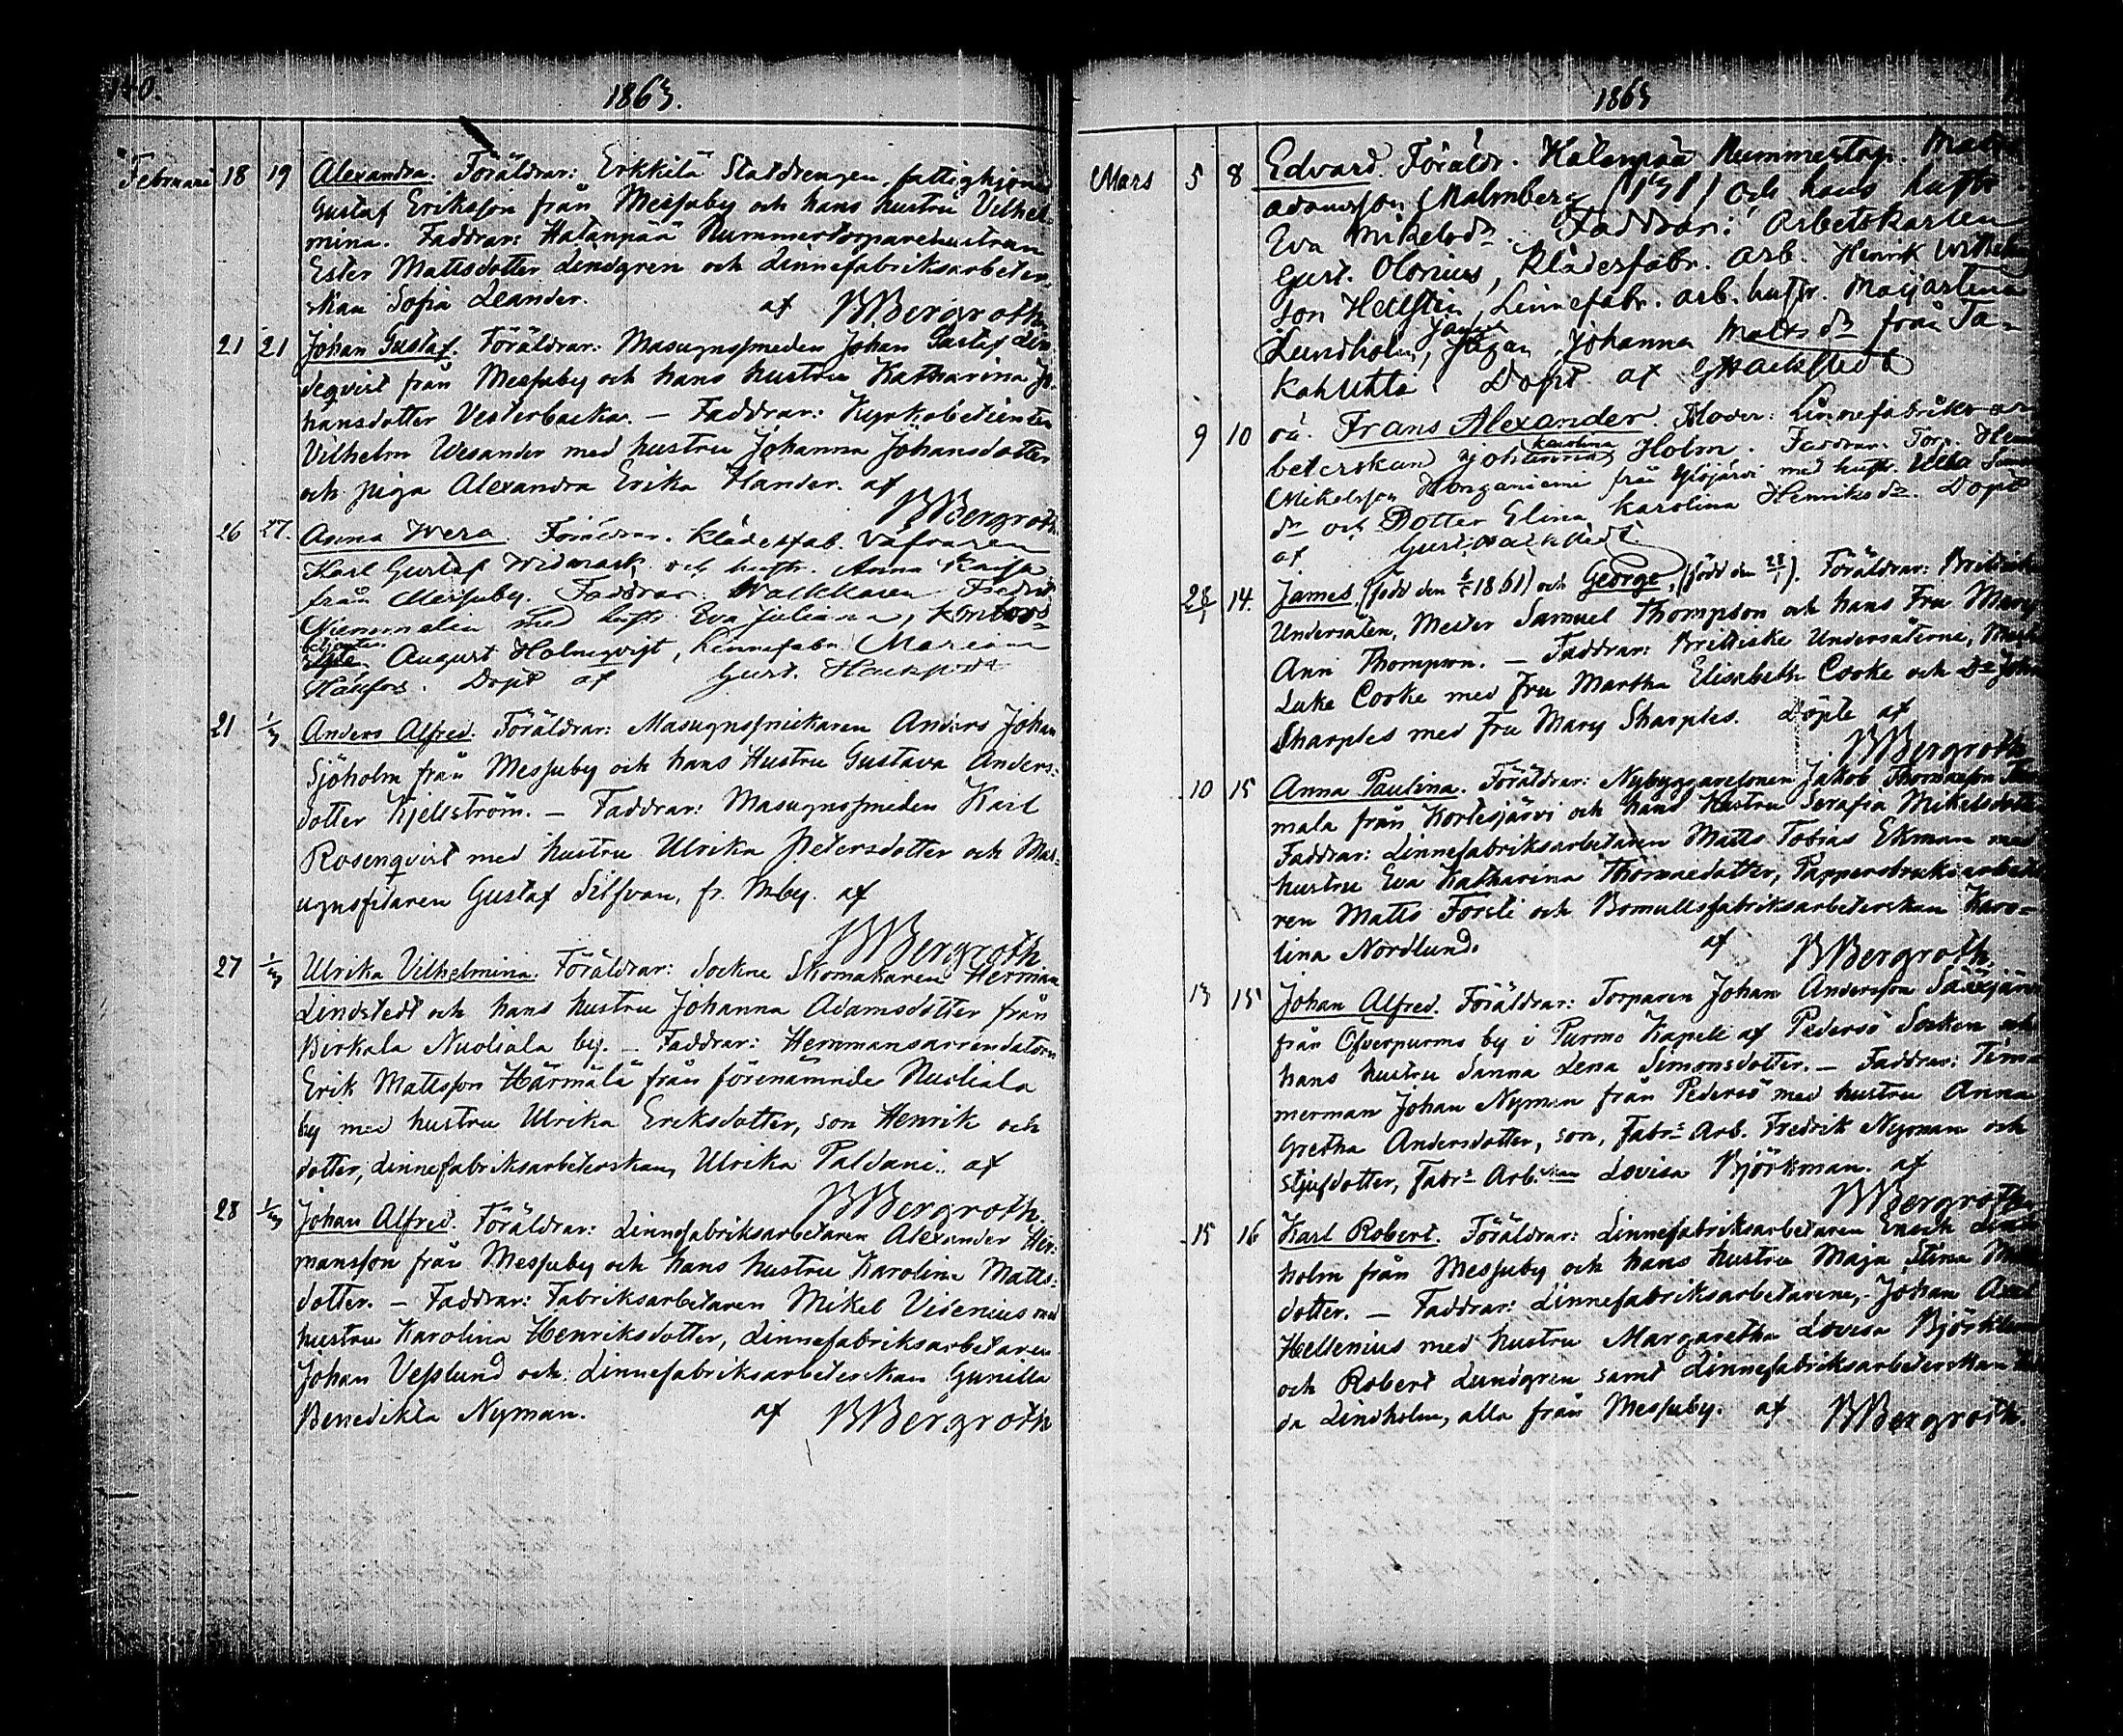 140.
1863.
Februari 18 19 Alexandra. Föräldrar: Erkkilä Statdrengen, fattighjonet
Gustaf Eriksson från Messuby och hans hustru Vilhel-
mina. Faddrar: Hatanpää Nummertorparehustrun
Ester Mattsdotter Lindgren och Linnefabriksarbeter-
skan Sofia Leander. af BBergroth
21 21 Johan Gustaf. Föräldrar: Masugnssmeden Johan Gustaf Lin-
deqvist från Messuby och hans hustru Katharina Jo-
hansdotter Vesterbacka. — Faddrar: Kyrkobetienten
Vilhelm Wesander med hustru Johanna Johansdotter
och piga Alexandra Erika Flander. af
BBergroth.
26 27. Anna Wera. Föräldrar. Klädesfab. Väfvaren
Karl Gustaf Widmark och hustr. Anna Kaisa
från Messuby. Faddrar: Fredrik
med hustr. Eva Juliana, Kontors-
betjenten
August Holmqvist, Linnefabr. Maria
Döpt af Gust. Hackstedt
21 1/3 Anders Alfred. Föräldrar: Masugnssnickaren Anders Johan
Sjöholm från Messuby och hans Hustru Gustava Anders-
dotter Kjellström. — Faddrar: Masugnssmeden Karl
Rosenqvist med hustru Ulrika Petersdotter och Mas-
ugnsfilaren Gustaf Silfvan, fr. Mby. af
BBergroth
27 1/3 Ulrika Vilhelmina. Föräldrar: Sockne Skomakaren Herman
Lindstedt och hans hustru Johanna Adamsdotter från
Birkala Nuoliala by. — Faddrar: Hemmansarrendatorn
Erik Mattsson Härmälä från förenämnde Nuoliala
by med hustru Ulrika Eriksdotter, son Henrik och
dotter, Linnefabriksarbeterskan, Ulrika Paldani. af
BBergroth.
28 1/3 Johan Alfred. Föräldrar: Linnefabriksarbetaren Alexander Her-
mansson från Messuby och hans hustru Karolina Matts-
dotter. — Faddrar: Fabriksarbetaren Mikel Videnius med
hustru Karolina Henriksdotter, Linnefabriksarbetaren
Johan Vesslund och Linnefabriksarbeterskan Gunilla
Benedikta Nyman. af BBergroth
1863
Mars 5 8 Edvard. Föräldr. Hatanpää Nummertorp. Matts
Adamsson Malmberg och hans hustr.
Eva Mikelsdr. Faddrar: Arbetskarlen
Gust. Olonius, Klädesfabr. arb. Henrik Wilhelm-
son Hellstén, Linnefabr. arb. hustr. Maijastina
Lundholm, Pigan Johanna Mattsdr från Ta-
kahuhti. Döpt af GHackstedt
9 10 oä. Frans Alexander. Moder: Linnefabriks ar-
beterskan Johanna Karolina Holm. Faddrar. Torp. Henrik
Mikelsson från Ylöjärvi med hustr. Ulla
dr och Dotter Elina Karolina Henriksdr. Döpt
af Gust. Hackstedt
28/1 14. James, (född den 1861) och George, (född den 28/1). Föräldrar: Brittiske
Undersåten, Mester Samuel Thompson och hans Fru Mary
Ann Thompson. — Faddrar: Brittiske Undersåterne,
Luke Cooke med Fru Martha Elisabeth Cooke och Do John
Sharples med Fru Mary Sharples. Döpte af
BBergroth
10 15 Anna Paulina. Föräldrar: Nybyggaresonen Jakob Thomasson
mala från Kortesjärvi och hans Hustru Serafia Mikelsdotter
Faddrar: Linnefabriksarbetaren Matts Tobias Ekman med
hustru Eva Katharina Thomaedotter, Pappersbruksarbeta-
ren Matts Forsti och Bomullsfabriksarbeterskan Karo-
lina Nordlund. af BBergroth.
13 15 Johan Alfred. Föräldrar: Torparen Johan Andersson Sääxjärvi
från Öfverpurmo by i Purmo Kapell af Pedersö Socken och
hans hustru Sanna Lena Simonsdotter. — Faddrar: Tim-
merman Johan Nyman från Pedersö med hustru Anna
Gretha Andersdotter, son, Fabrs Arb. Fredrik Nyman och
stjufdotter, Fabrs Arb.skan Lovisa Björkman. af
BBergroth
15 16 Karl Robert. Föräldrar: Linnefabriksarbetaren Enoch Lind-
holm från Messuby och hans hustru Maja Stina
dotter. — Faddrar: Linnefabriksarbetarene, Johan Axel
Hellenius med hustru Margaretha Lovisa Björklund
och Robert Lundgren samt Linnefabriksarbeterskan
da Lindholm, alla från Messuby. af BBergroth.